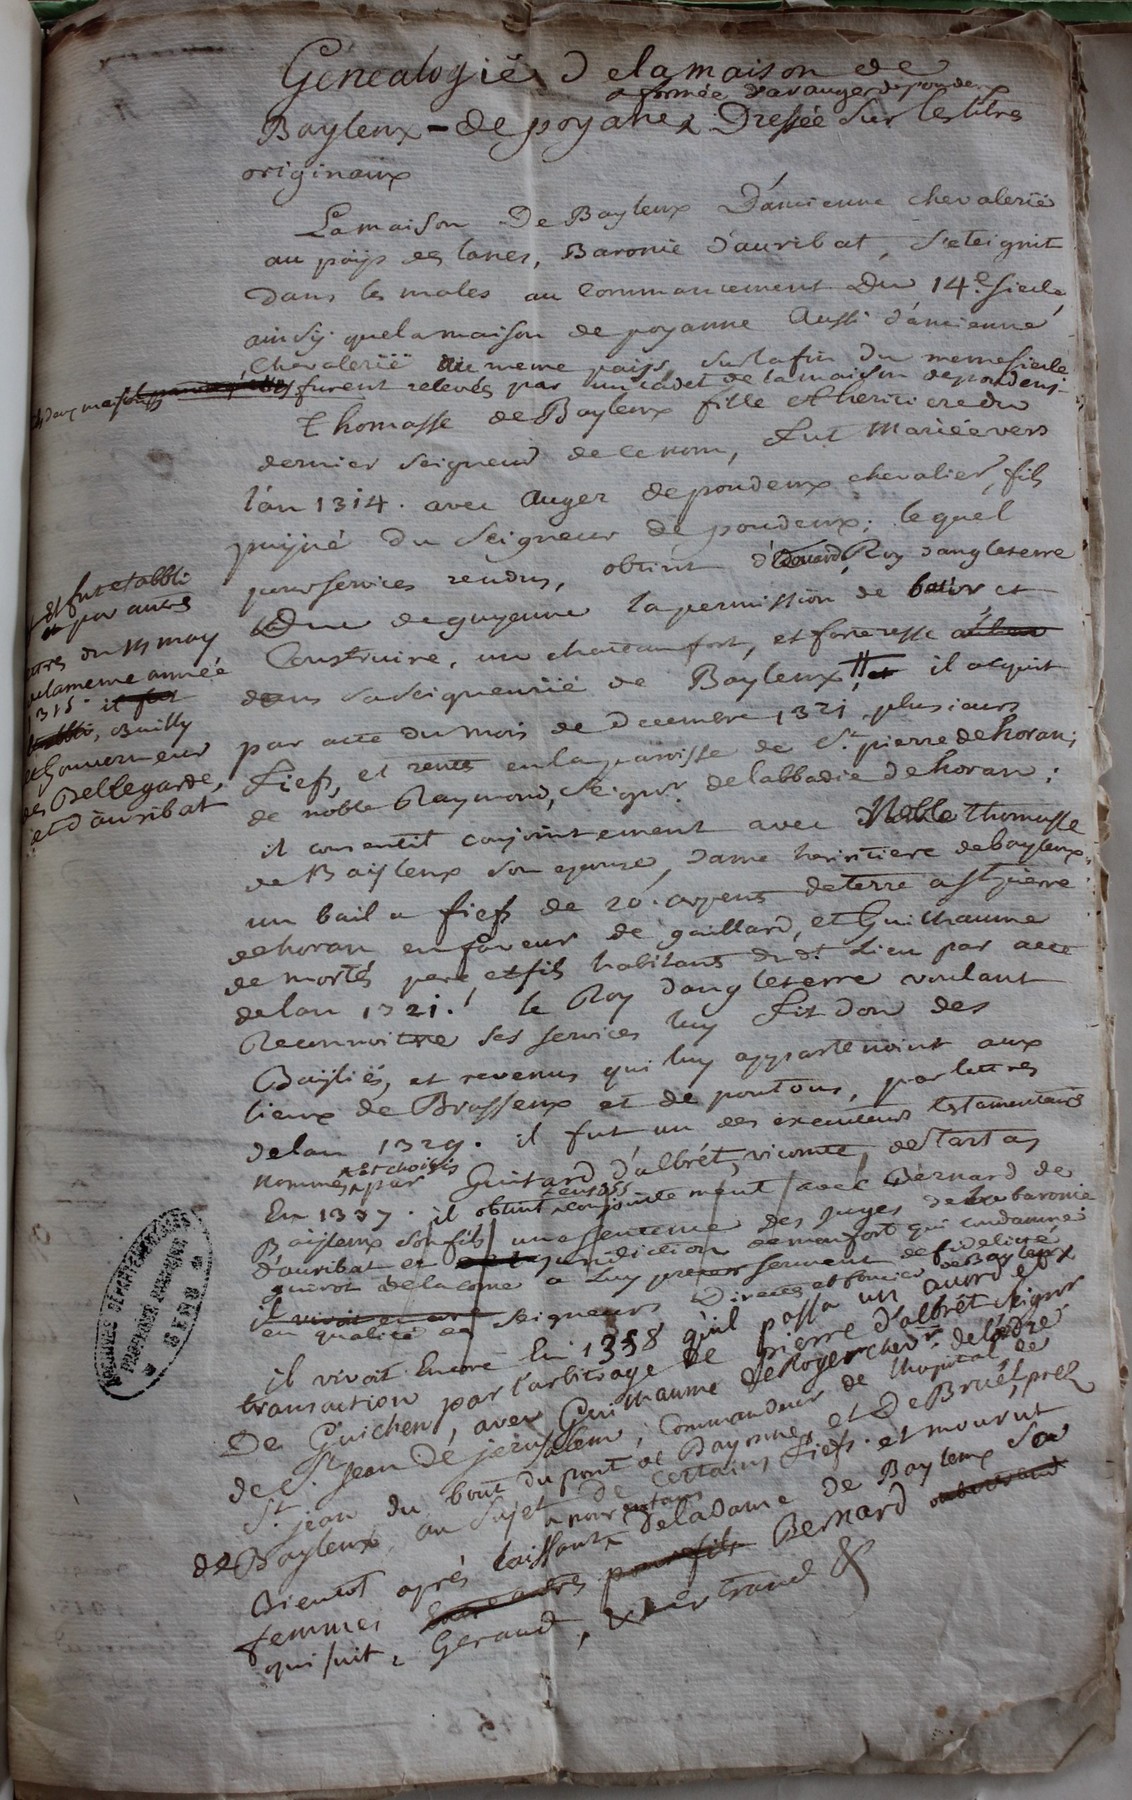 Genealogië de la maison de
formée d'auger de poudenx
Baylenx = de poyane, Dressée sur les titres
originaux
La maison De Baylenx D'ancienne chevalerië
au païs des lanes, Baronie d'auribat, s'eteignit
dans les males au Commancement Du 14e. siecle,
ainsÿ que la maison de poyanne Aussi d'ancienne
Chevalerië du meme païs, sur la fin du meme siecle
maisons furent relevés par un cadet de la maison de poudens
Thomasse de Baylenx fille et heritiere du
dernier seigneur de ce nom, fut Mariée vers
l'an 1314. avec Auger de poudenx chevalier, fils
puîné du Seigneur de poudenx; lequel
pour services rendus, obtint d'Edouard Roy d'angleterre
Duc de guÿenne la permission de batir, et
Construire, un chateau fort, et forteresse
dans sa seigneurië de Baylenx, il acquit
et fut etabbli
par autres
lettres du 14 may
de la meme année
1315. il fut
etabbli, Bailly
et Gouverneur
de Bellegarde,
et d'auribat
par acte du mois de Decembre 1321 plusieurs
fiefs, et rentes en la paroisse de St. pierre de horan;
de noble Raymond, Seignr. de l'abbadie de horan;
il consentit conjointement avec Noble Thomasse
de Baylenx son epouse, dame heritiere de baylenx,
un bail a fiefs de 20. arpents de terre a St pierre
de horan en faveur de gaillard, et Guilhaume
de mortés pere et fils habitans du dt. Lieu par acte
de l'an 1321. le Roy d'angleterre voulant
Reconnoitre ses services luy fit don des
Bayliës, et revenus qui luy appartenoint aux
lieux de Brassenx et de pontous, par lettres
de l'an 1329. il fut un des executeurs testamentaires
nommés et choisis par Guitard d'albrét, vicomte de Tartas
En 1337. il obtint conjointement avec Bernard de
Baylenx son fils une sentence des juges de la baronie
d'auribat et juridiction de monfort qui condamne
guirot de la come a luy preter serment de fidelité
il vivoit encore
en qualité de seigneurs Directs et foncier de Baylenx
il vivoit Encore En 1358 qu'il passa un accord et
transaction par l'arbitrage de pierre d'albrét seignr
De Guichen, avec Guilhaume de Roger chevr. de l'ordre
de St. Jean de jerusalem, Commandeur de l'hopital de
St. jean du bout du pont de Bayonne, et De Bruël, prez
de Baylenx, au sujet de certains fiefs. et mourut
Bientot après laissant de la dame de Baylenx sa
femme, entre autres pour fils Bernard
qui suit, Geraud, & Bertrand &
ARCHIVES DÉPARTEMENTALES
GERS